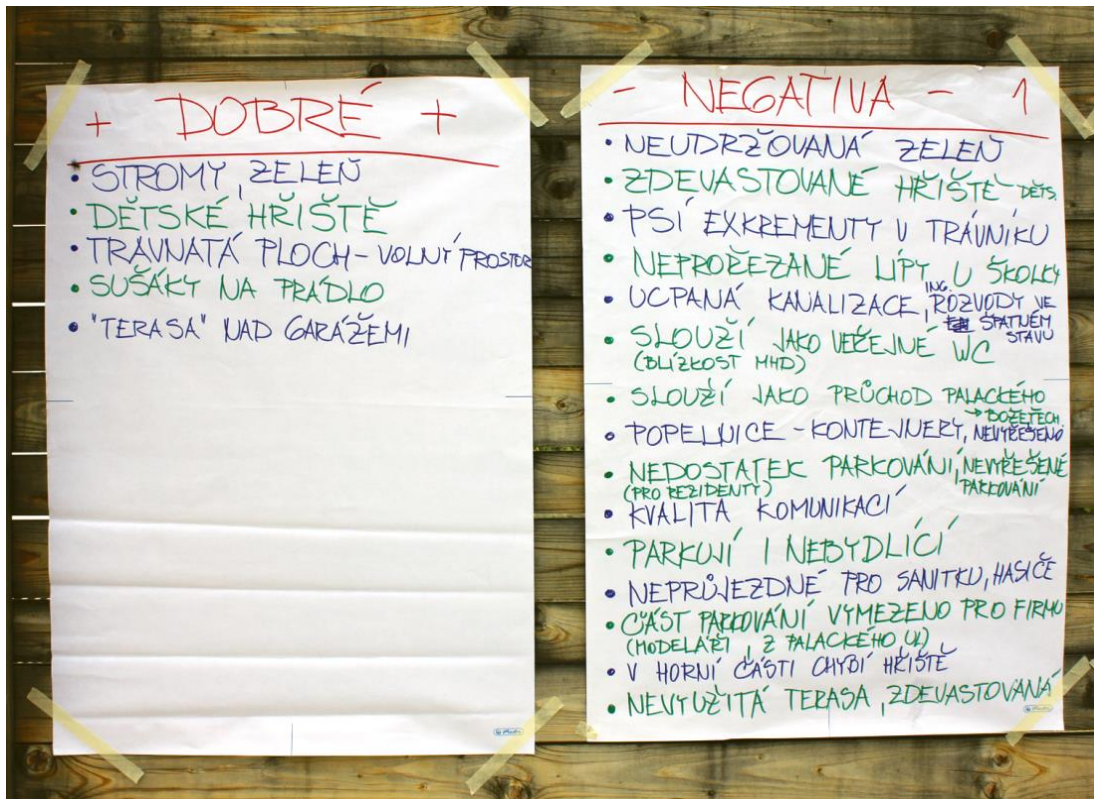 + DOBRÉ +
• STROMY, ZELEŇ
• DĚTSKÉ HŘIŠTĚ
• TRÁVNATÁ PLOCH - VOLNÝ PROSTOR
• SUŠÁKY NA PRÁDLO
• "TERASA" NAD GARÁŽEMI
- NEGATIVA - 1
• NEUDRŽOVANÁ ZELEŇ
• ZDEVASTOVANÉ HŘIŠTĚ - DĚTS.
• PSÍ EXKREMENTY V TRÁVNÍKU
• NEPROŘEZANÉ LÍPY U ŠKOLKY
• UCPANÁ KANALIZACE, ING. ROZVODY VE
ŠPATNÉM
STAVU
• SLOUŽÍ JAKO VEŘEJNÉ WC
(BLÍZKOST MHD)
• SLOUŽÍ JAKO PRŮCHOD PALACKÉHO
→ BOŽETĚCH.
• POPELNICE - KONTEJNERY, NEVYŘEŠENO
• NEDOSTATEK PARKOVÁNÍ, NEVYŘEŠENÉ
(PRO REZIDENTY) PARKOVÁNÍ
• KVALITA KOMUNIKACÍ
• PARKUJÍ I NEBYDLÍCÍ
• NEPRŮJEZDNÉ PRO SANITKU, HASIČE
• ČÁST PARKOVÁNÍ VYMEZENO PRO FIRMU
(MODELÁŘI, Z PALACKÉHO UL)
• V HORNÍ ČÁSTI CHYBÍ HŘIŠTĚ
• NEVYUŽITÁ TERASA, ZDEVASTOVANÁ